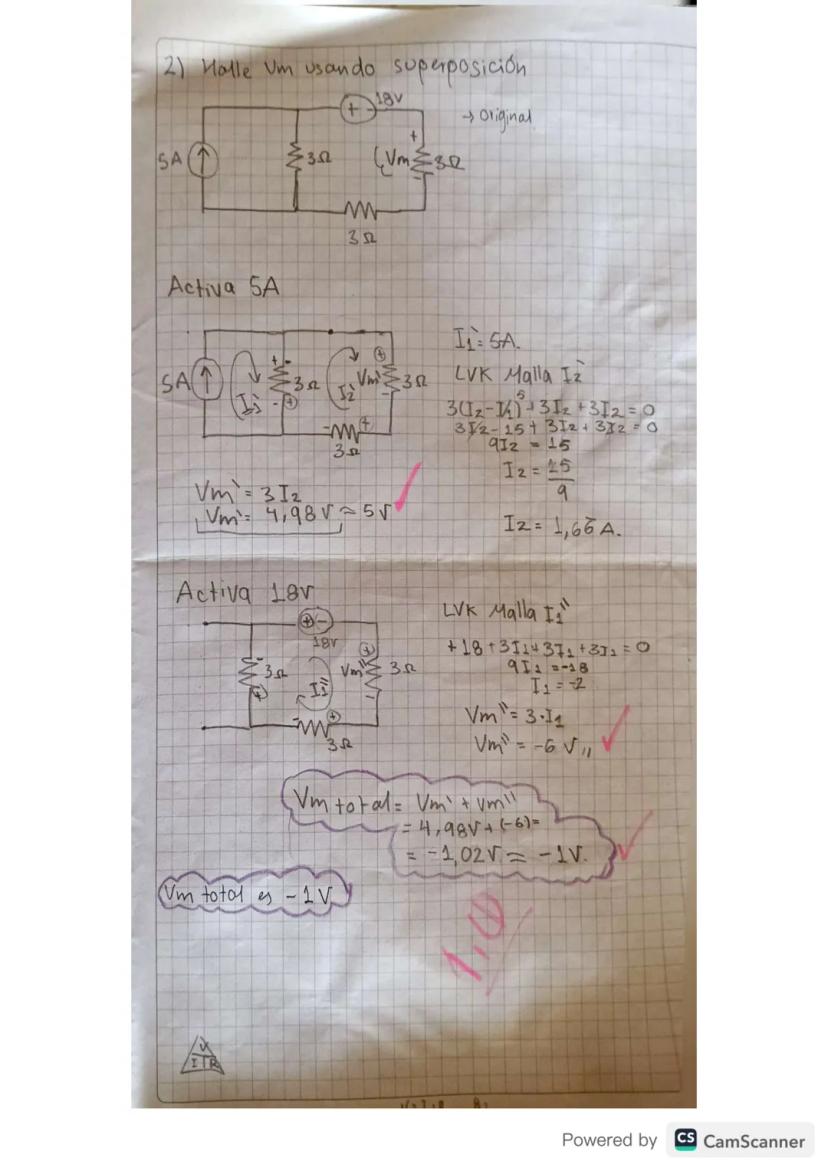 2) Halle Vm usando superposición
18V
+ -
→ Original
5A
3Ω
+
Vm
-
3Ω
3Ω
Activa 5A
5A
I₁'
+
3Ω
- +
I₂'
+
Vm'
-
3Ω
- +
3Ω
I₁' = 5A.
LVK Malla I₂'
3(I₂-I₁)⁵+3I₂+3I₂=0
3I₂-15+3I₂+3I₂=0
9I₂ = 15
I₂ = 15
9
I₂ = 1,66 A.
Vm' = 3I₂
Vm' = 4,98V ≈ 5V
Activa 18V
+ -
18V
-
3Ω
+
I₁''
+
Vm''
-
3Ω
- +
3Ω
LVK Malla I₁''
+18+3I₁+3I₁+3I₁=0
9I₁=-18
I₁=-2
Vm''=3·I₁
Vm''=-6V,,
Vm total = Vm' + Vm''
= 4,98V+(-6)=
= -1,02V ≈ -1V.
Vm total es -1V
1,0
ITR
Powered by CS CamScanner